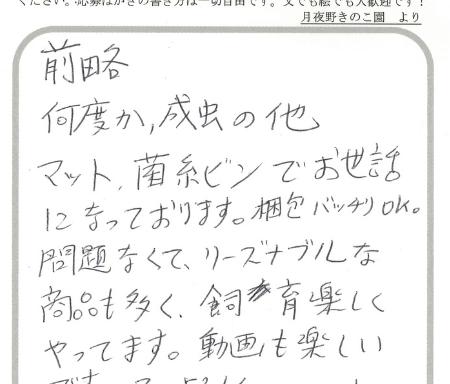 ください。応募はがきの書き方は一切自由です。文でも絵でも大歓迎です！
月夜野きのこ園　より
前略
何度か,成虫の他
マット、菌糸ビンでお世話
になっております。梱包バッチリOK。
問題なくて、リーズナブルな
商品も多く、飼育楽しく
やってます。動画も楽しい
です